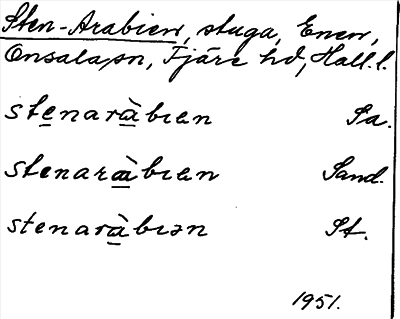 Sten-Arabien, stuga, Enen,
Onsala sn, Fjäre hd, Hall. l.
stenaràbιen Sa.
stenaràbιen Sand.
stenaràbιən St.
1951.